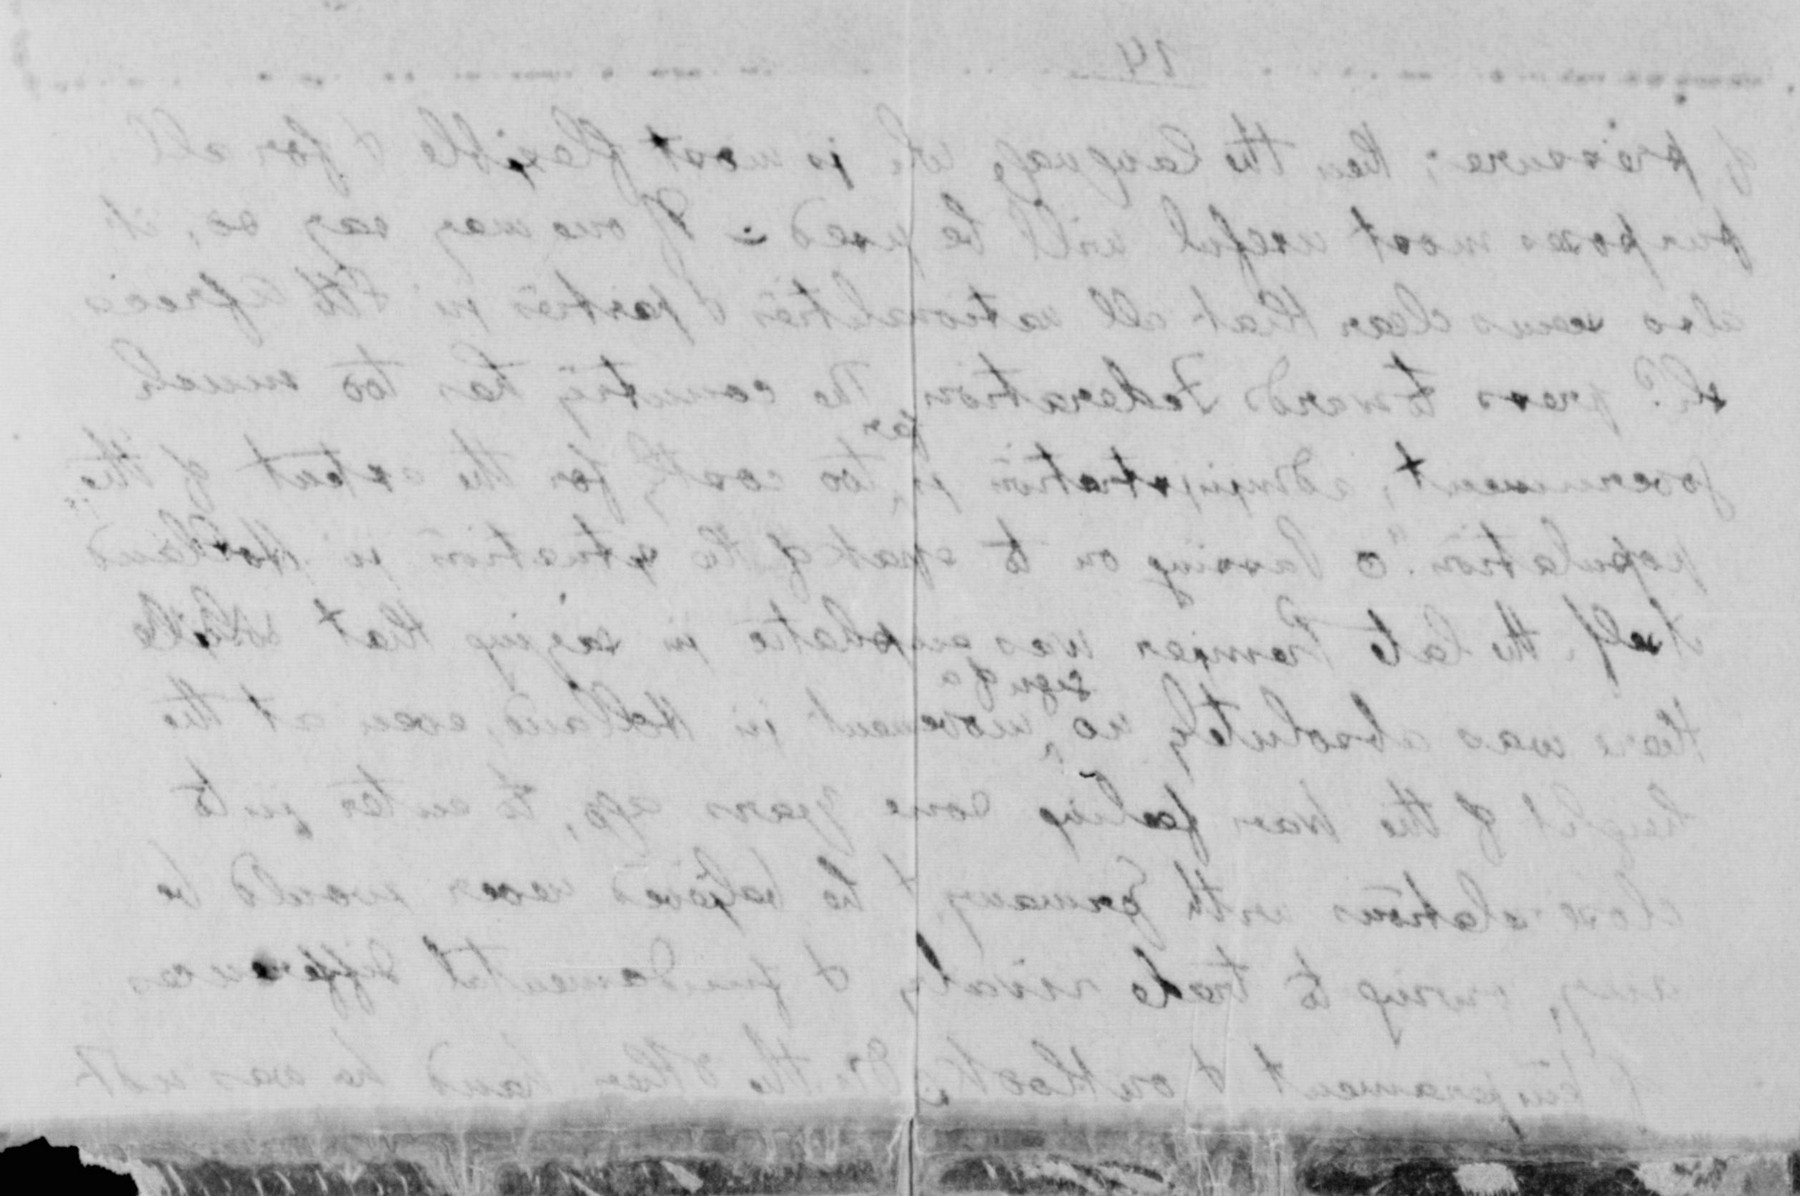 14
of pressure; then the language wh is most flexible & for all
purposes most useful will be used – If one may say so, it
also seems clear that all nationalities & parties in Sth Africa
shd press towards Federation. The country has too much
government, administration is far too costly for the extent of the
population." Passing on to speak of the situation in Holland
itself, the late Premier was emphatic in saying that while
there was absolutely no sign of a movement in Holland, even at the
height of the War feeling some years ago, to enter into
close relations with Germany, & he believes never would be
any, owing to trade rivalry & fundamental differences
of temperament & outlook; On the other hand he was not